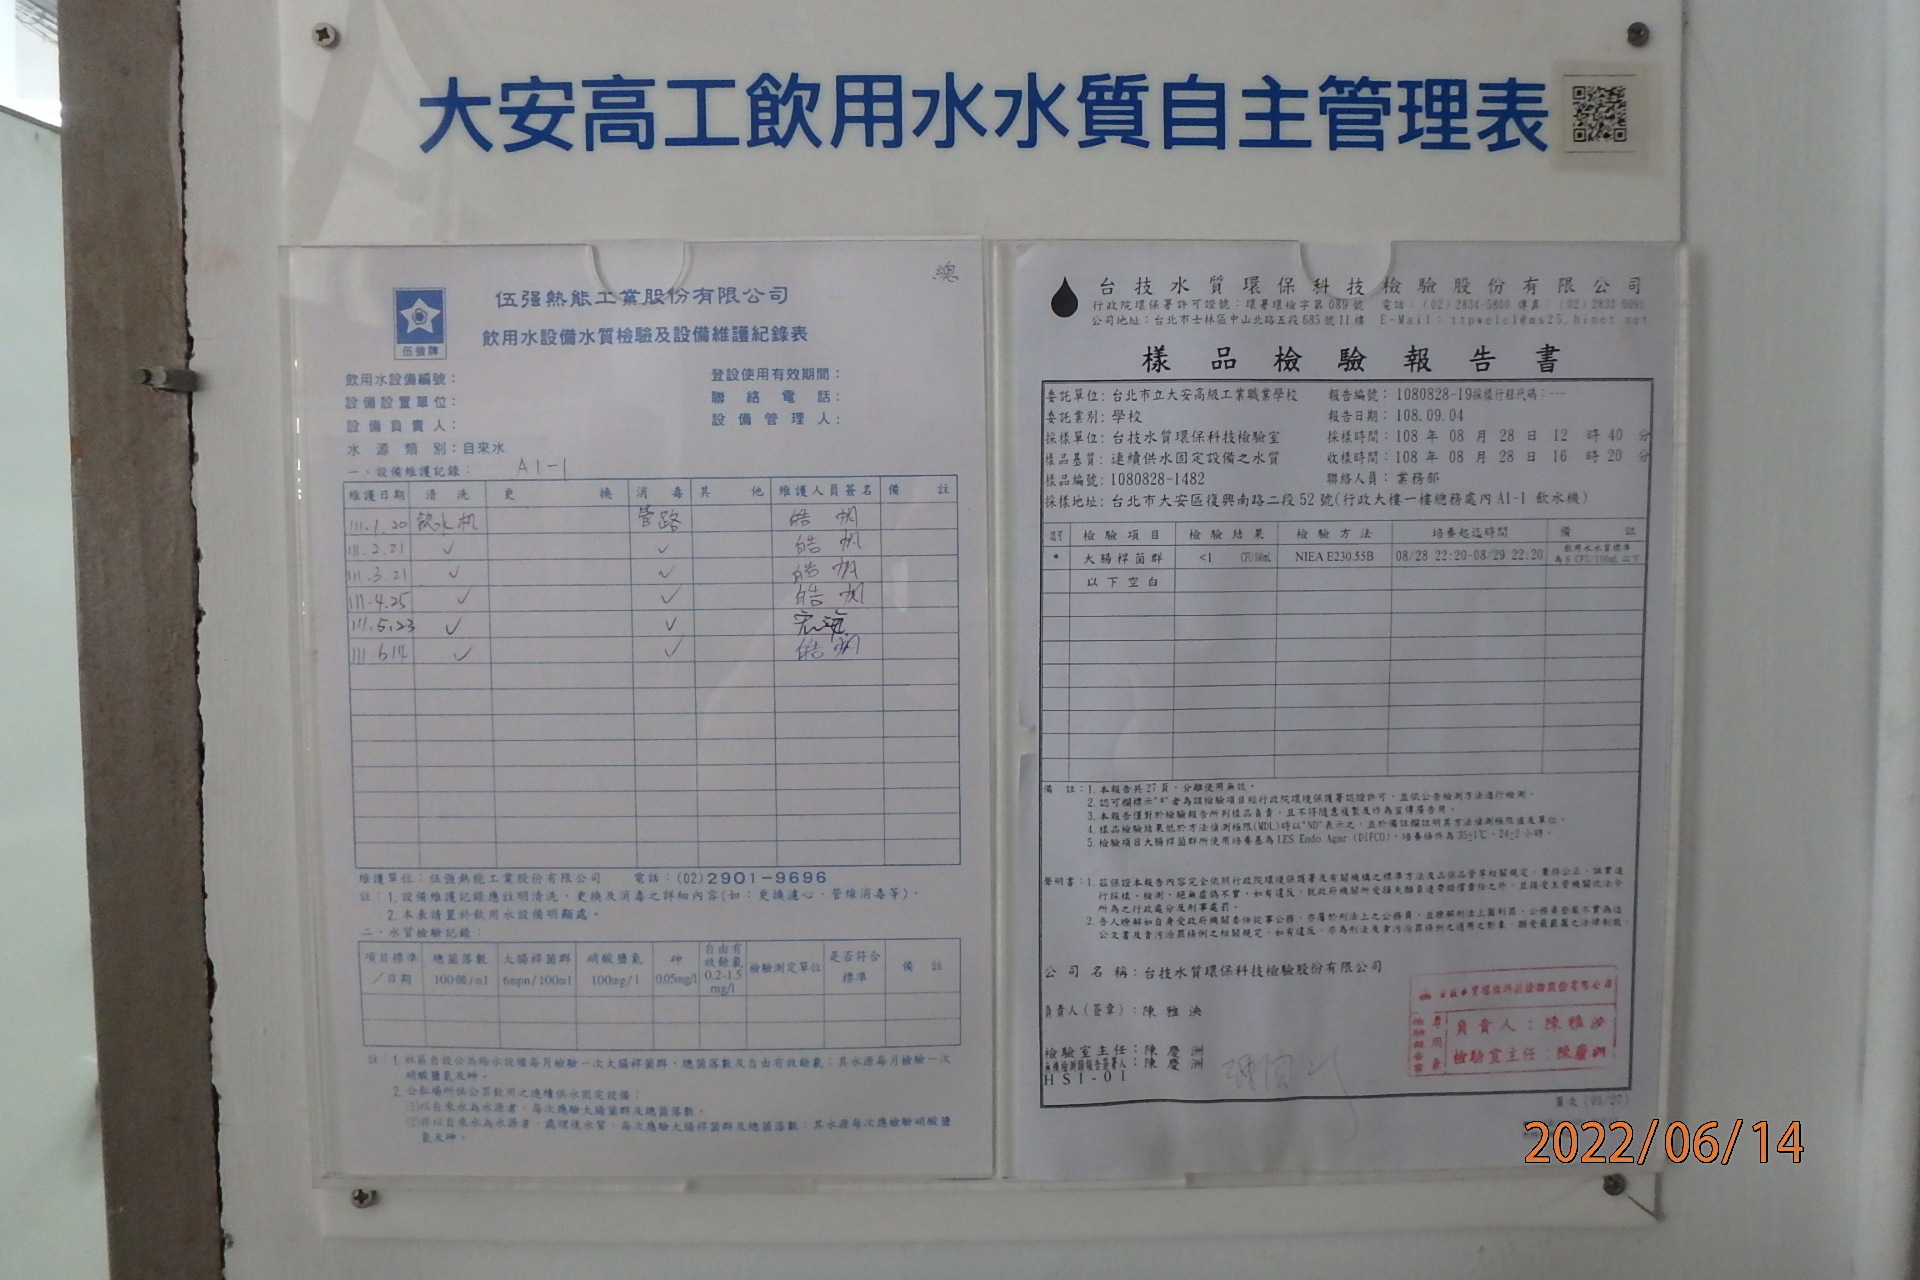 大安高工飲用水水質自主管理表
總
伍强熱能工業股份有限公司
伍強牌
飲用水設備水質檢驗及設備維護紀錄表
飲用水設備編號：
登設使用有效期間：
設備設置單位：
聯絡電話：
設備負責人：
設備管理人：
水源類別：自來水
一、設備維護記錄： A1-1
維護日期 清洗 更換 消毒 其他 維護人員簽名 備註
111.1.20 飲水机 管路 皓帆
111.2.21 ✓ ✓ 皓帆
111.3.21 ✓ ✓ 皓帆
111.4.25 ✓ ✓ 皓帆
111.5.23 ✓ ✓
111.6.14 ✓ ✓ 皓帆
維護單位：伍强熱能工業股份有限公司 電話：(02)2901-9696
註：1. 設備維護記錄應註明清洗、更換及消毒之詳細內容(如：更換濾心、管線消毒等)。
2. 本表請置於飲用水設備明顯處。
二、水質檢驗記錄：
項目標準／日期 總菌落數 100個/ml 大腸桿菌群 6mpn/100ml 硝酸鹽氮 100mg/l 砷 0.05mg/l 自由有效餘氯 0.2-1.5 mg/l 檢驗測定單位 是否符合標準 備註
註：1. 社區自設公共給水設備每月檢驗一次大腸桿菌群、總菌落數及自由有效餘氯；其水源每月檢驗一次
硝酸鹽氮及砷。
2. 公私場所供公眾飲用之連續供水固定設備：
⑴以自來水為水源者，每次應驗大腸桿菌群及總菌落數。
⑵非以自來水為水源者，處理後水質，每次應驗大腸桿菌群及總菌落數；其水源每次應檢驗硝酸鹽
氮及砷。
台技水質環保科技檢驗股份有限公司
行政院環保署許可證號：環署環檢字第089號 電話：(02)2834-5800 傳真：(02)2833-
公司地址：台北市士林區中山北路五段685號11樓 E-Mail：ttpwelcl@ms25.hinet.net
樣品檢驗報告書
委託單位：台北市立大安高級工業職業學校 報告編號：1080828-19採樣行程代碼：---
委託業別：學校 報告日期：108.09.04
採樣單位：台技水質環保科技檢驗室 採樣時間：108 年 08 月 28 日 12 時 40 分
樣品基質：連續供水固定設備之水質 收樣時間：108 年 08 月 28 日 16 時 20 分
樣品編號：1080828-1482 聯絡人員：業務部
採樣地址：台北市大安區復興南路二段52號(行政大樓一樓總務處內A1-1 飲水機)
認可 檢驗項目 檢驗結果 檢驗方法 培養起迄時間 備註
* 大腸桿菌群 <1 CFU/100mL NIEA E230.55B 08/28 22:20-08/29 22:20 飲用水水質標準為6 CFU/100mL 以下
以下空白
備註：1. 本報告共27頁，分離使用無效。
2. 認可欄標示"*"者為該檢驗項目經行政院環境保護署認證許可，並依公告檢測方法進行檢測。
3. 本報告僅對於檢驗報告所列樣品負責，且不得隨意複製及作為宣傳廣告用。
4. 樣品檢驗結果低於方法偵測極限(MDL)時以"ND"表示之，並於備註欄註明其方法偵測極限值及單位。
5. 檢驗項目大腸桿菌群所使用培養基為LES Endo Agar (DIFCO)，培養條件為35±1℃，24±2小時。
聲明書：1. 茲保證本報告內容完全依照行政院環境保護署及有關機構之標準方法及品保品管等相關規定，秉持公正、誠實進
行採樣、檢測，絕無虛偽不實，如有違反，就政府機關所受損失願負連帶賠償責任之外，並接受主管機關依法令
所為之行政處分及刑事處罰。
2. 吾人瞭解如自身受政府機關委任從事公務，亦屬於刑法上之公務員，並瞭解刑法上圖利罪、公務員登載不實偽造
公文書及貪污治罪條例之相關規定，如有違反，亦為刑法及貪污治罪條例之適用之對象，願受最嚴厲之法律制裁。
公司名稱：台技水質環保科技檢驗股份有限公司
負責人(簽章)：陳雅泱
檢驗室主任：陳慶洲
無機檢測類報告簽署人：陳慶洲
HSI-01
台技水質環保科技檢驗股份有限公司
檢驗報告專用章
負責人：陳雅泱
檢驗室主任：陳慶洲
頁次 (01/27)
2022/06/14